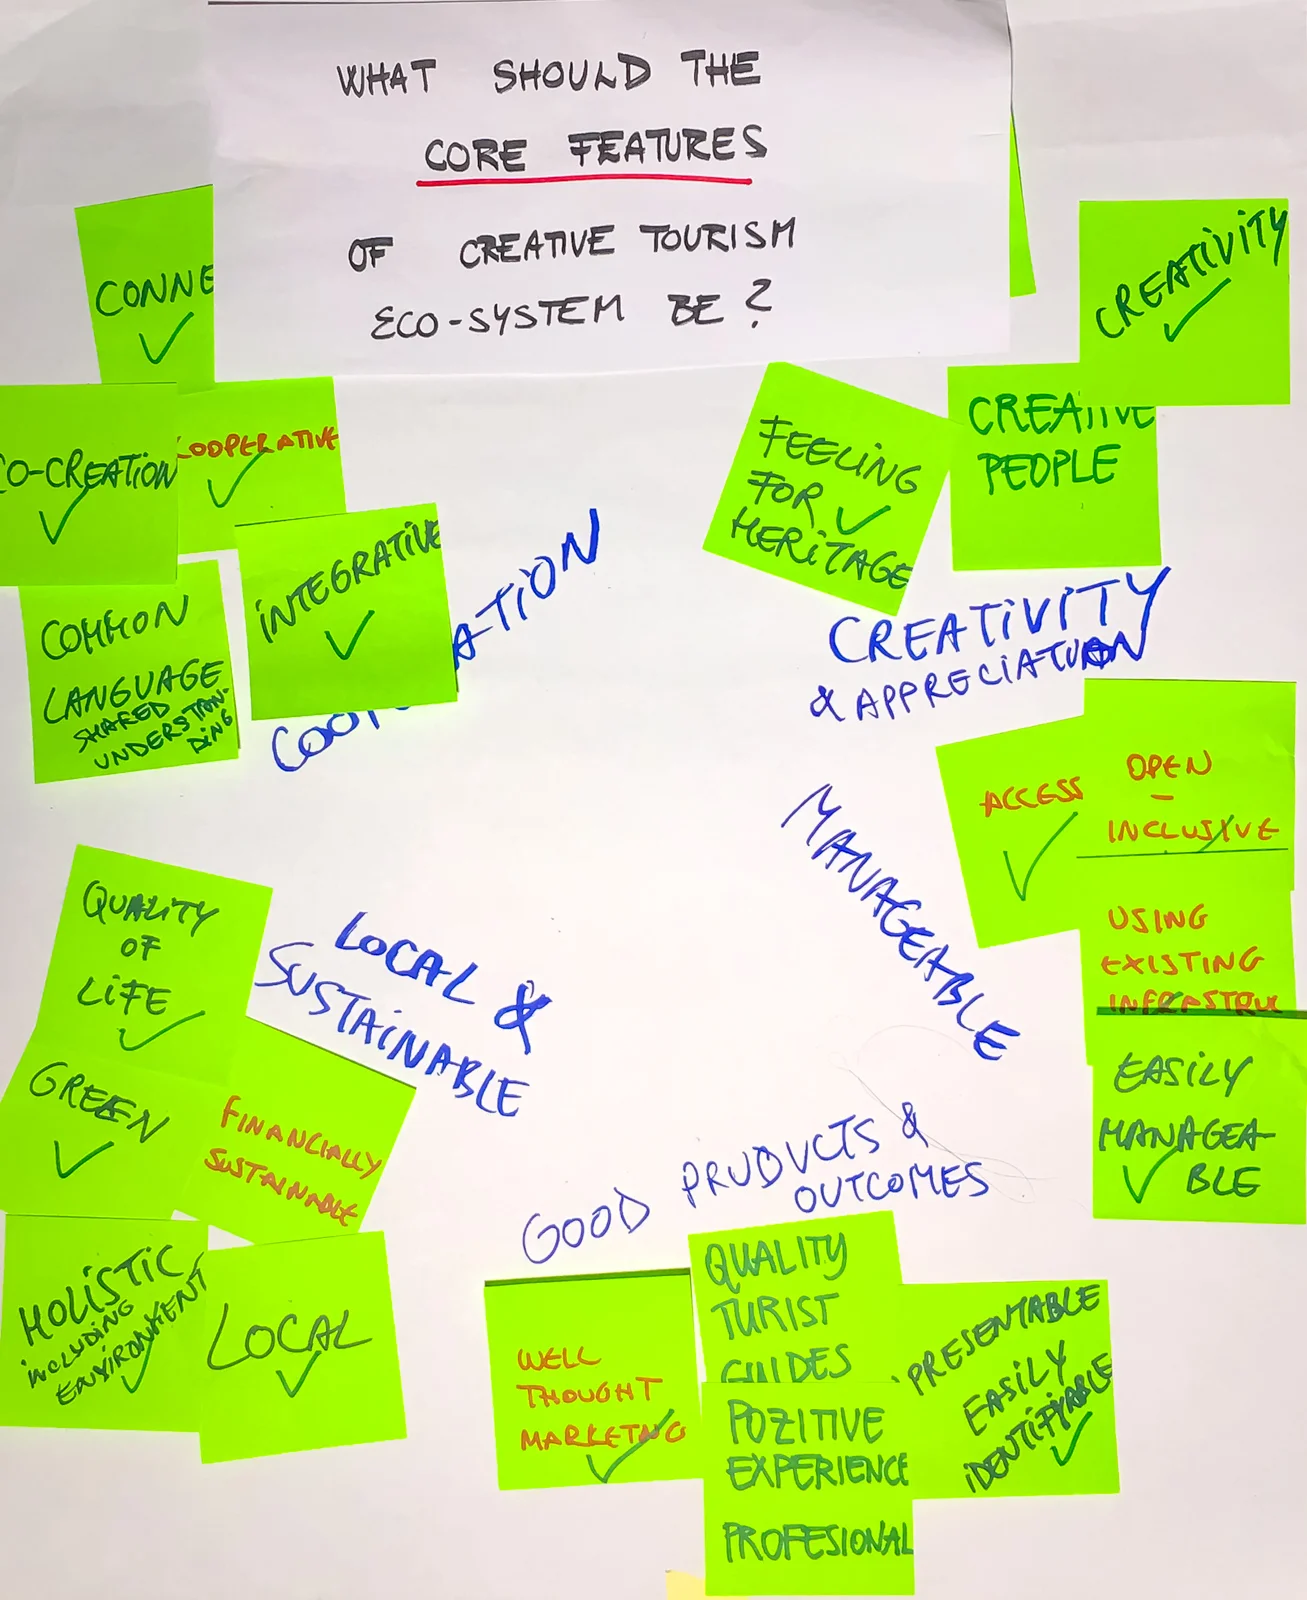 WHAT SHOULD THE
CORE FEATURES
OF CREATIVE TOURISM
ECO-SYSTEM BE?
CONNE
CO-CREATION
COOPERATIVE
INTEGRATIVE
COMMON
LANGUAGE
SHARED
UNDERSTAN-
DING
COOP ATION
CREATIVITY
CREATIVE
PEOPLE
FEELING
FOR
HERITAGE
CREATIVITY
& APPRECIATION
ACCESS
OPEN
-
INCLUSIVE
USING
EXISTING
INFRASTRU
EASILY
MANAGEA-
BLE
MANAGEABLE
QUALITY
OF
LIFE
GREEN
FINANCIALLY
SUSTAINABLE
HOLISTIC
INCLUDING
ENVIRONMENT
LOCAL
LOCAL &
SUSTAINABLE
GOOD PRODUCTS &
OUTCOMES
WELL
THOUGHT
MARKETNG
QUALITY
TURIST
GUIDES
POZITIVE
EXPERIENCE
PROFESIONAL
PRESENTABLE
EASILY
IDENTIFYABLE